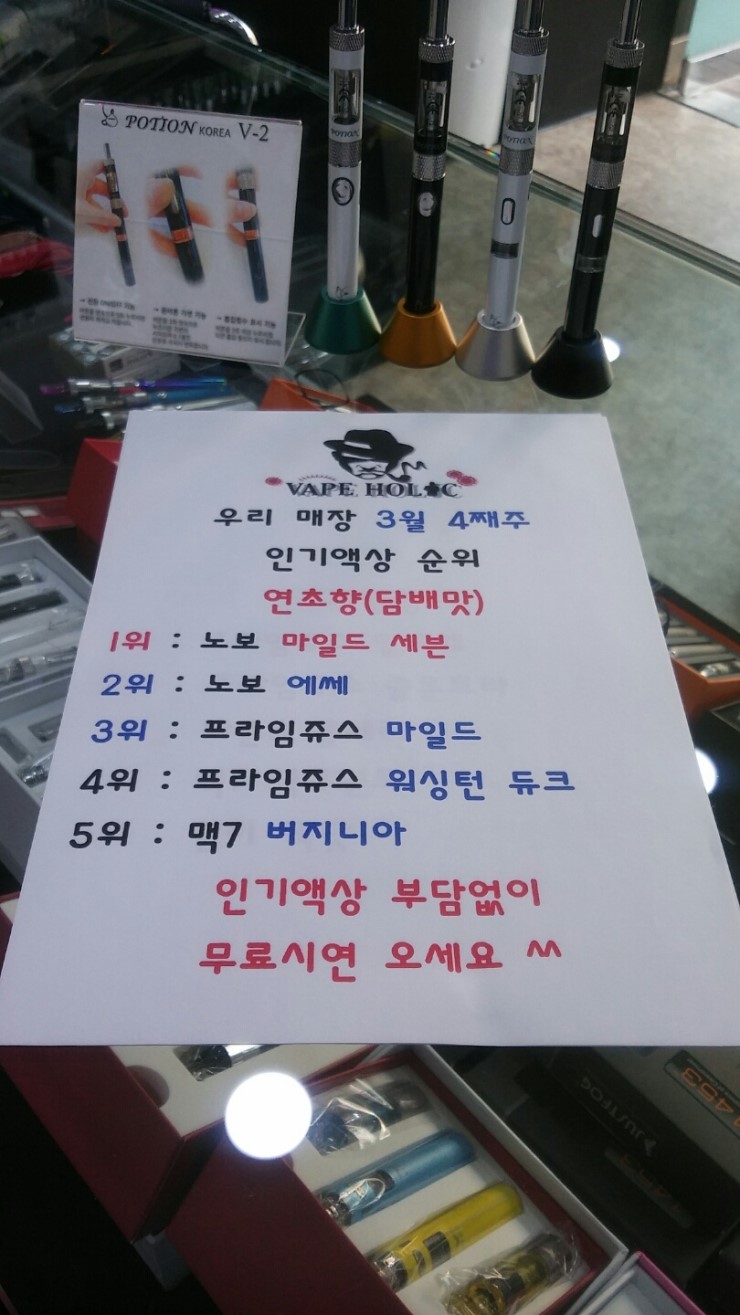 POTION KOREA V-2
POTION
POTION
VAPE HOLIC
우리 매장 3월 4째주
인기액상 순위
연초향(담배맛)
1위 : 노보 마일드 세븐
2위 : 노보 에쎄
3위 : 프라임쥬스 마일드
4위 : 프라임쥬스 워싱턴 듀크
5위 : 맥7 버지니아
인기액상 부담없이
무료시연 오세요 ^^
JUSTFOG
1453